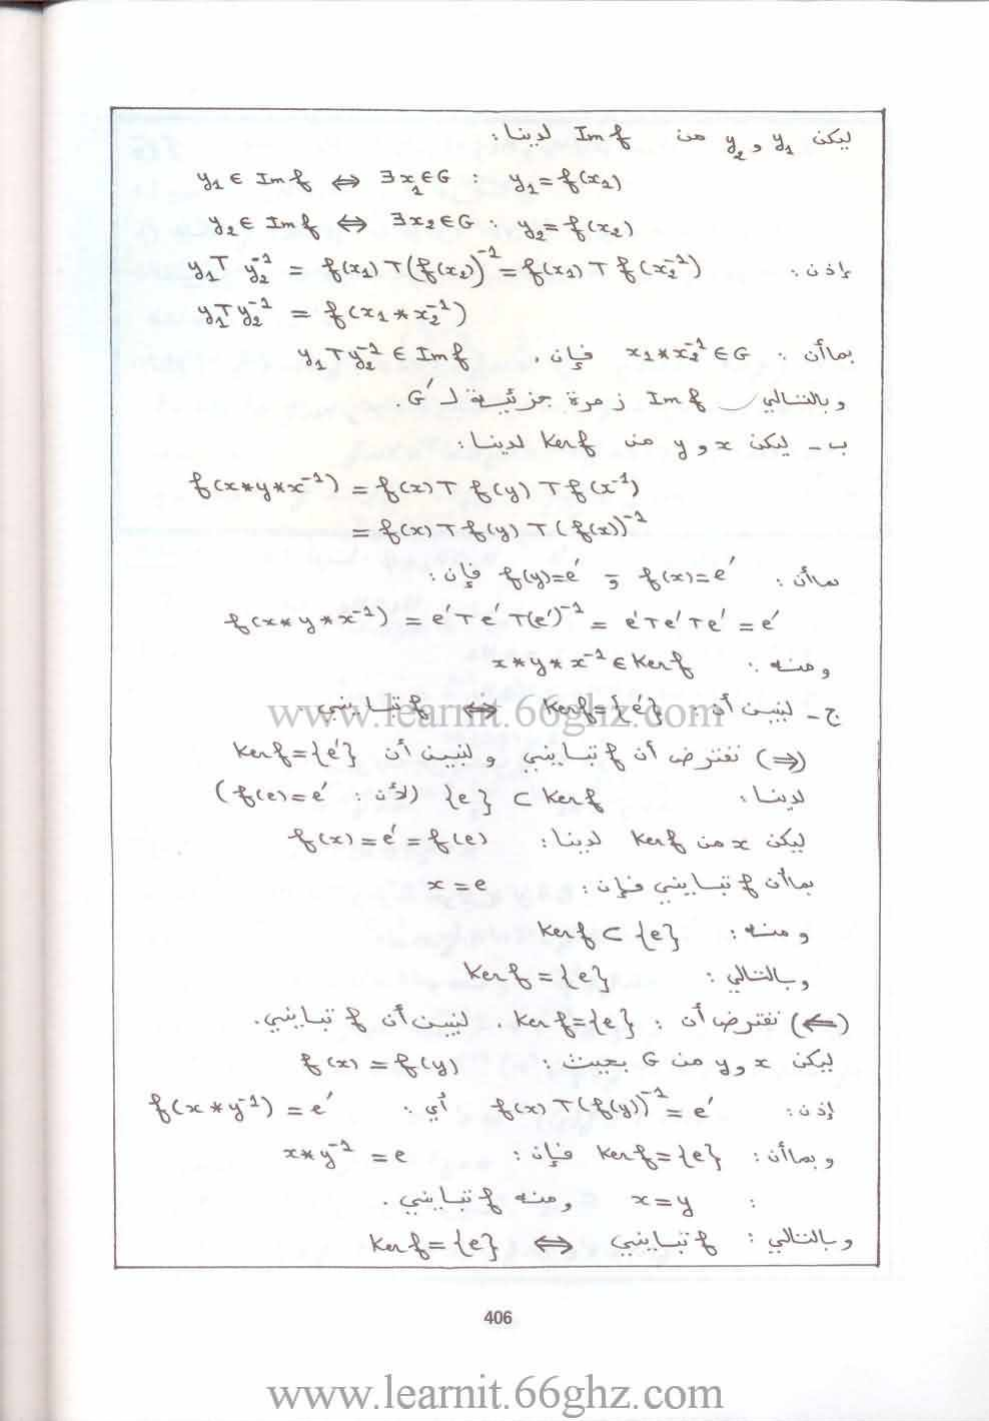 ليكن y₁ و y₂ من Im f لدينا:
y₁ ∈ Im f ⇔ ∃x₁∈G : y₁ = f(x₁)
y₂ ∈ Im f ⇔ ∃x₂∈G : y₂ = f(x₂)
إذن: y₁ ⊤ y₂⁻¹ = f(x₁) ⊤ (f(x₂))⁻¹ = f(x₁) ⊤ f(x₂⁻¹)
y₁ ⊤ y₂⁻¹ = f(x₁ * x₂⁻¹)
بما أن: x₁ * x₂⁻¹ ∈ G فإن: y₁ ⊤ y₂⁻¹ ∈ Im f
وبالتالي Im f زمرة جزئية لـ G'
ب - ليكن x و y من Ker f لدينا:
f(x*y*x⁻¹) = f(x) ⊤ f(y) ⊤ f(x⁻¹)
= f(x) ⊤ f(y) ⊤ (f(x))⁻¹
بما أن: f(x)=e' و f(y)=e' فإن:
f(x*y*x⁻¹) = e' ⊤ e' ⊤ (e')⁻¹ = e' ⊤ e' ⊤ e' = e'
ومنه: x*y*x⁻¹ ∈ Ker f
ج - لنبين أن: Ker f = {e'} ⇔ f تبايني.
(⇒) نفترض أن f تبايني ولنبين أن Ker f = {e'}
لدينا: {e} ⊂ Ker f (لأن: f(e)=e')
ليكن x من Ker f لدينا: f(x) = e' = f(e)
بما أن f تبايني فإن: x = e
ومنه: Ker f ⊂ {e}
وبالتالي: Ker f = {e}
(⇐) نفترض أن: Ker f = {e}. لنبين أن f تبايني.
ليكن x و y من G بحيث: f(x) = f(y)
إذن: f(x) ⊤ (f(y))⁻¹ = e' أي: f(x * y⁻¹) = e'
وبما أن: Ker f = {e} فإن: x * y⁻¹ = e
: x = y ومنه f تبايني.
وبالتالي: f تبايني ⇔ Ker f = {e}
406
www.learnit.66ghz.com
www.learnit.66ghz.com